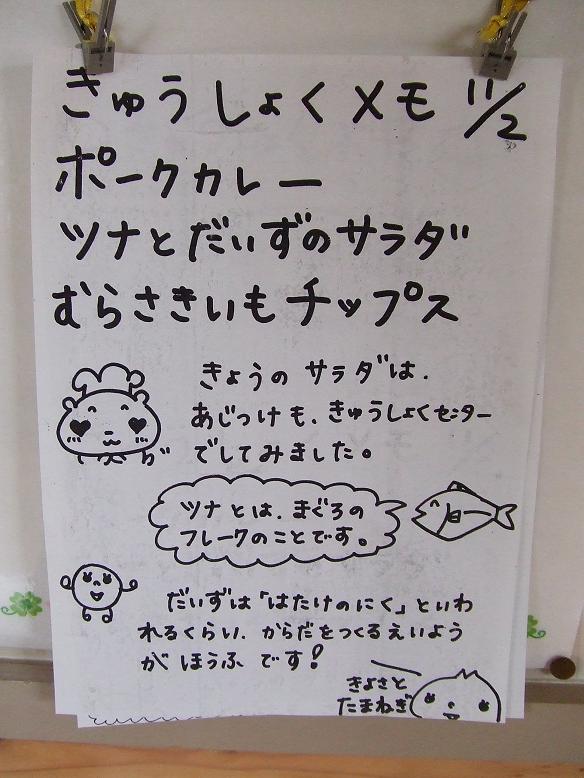 きゅうしょくメモ 11/2
ポークカレー
ツナとだいずのサラダ
むらさきいもチップス
きょうの サラダは、
あじつけも、きゅうしょくセンター
でしてみました。
ツナとは、まぐろの
フレークのことです。
だいずは「はたけのにく」といわ
れるくらい、からだをつくるえいよう
が ほうふ です!
きよさと
たまねぎ